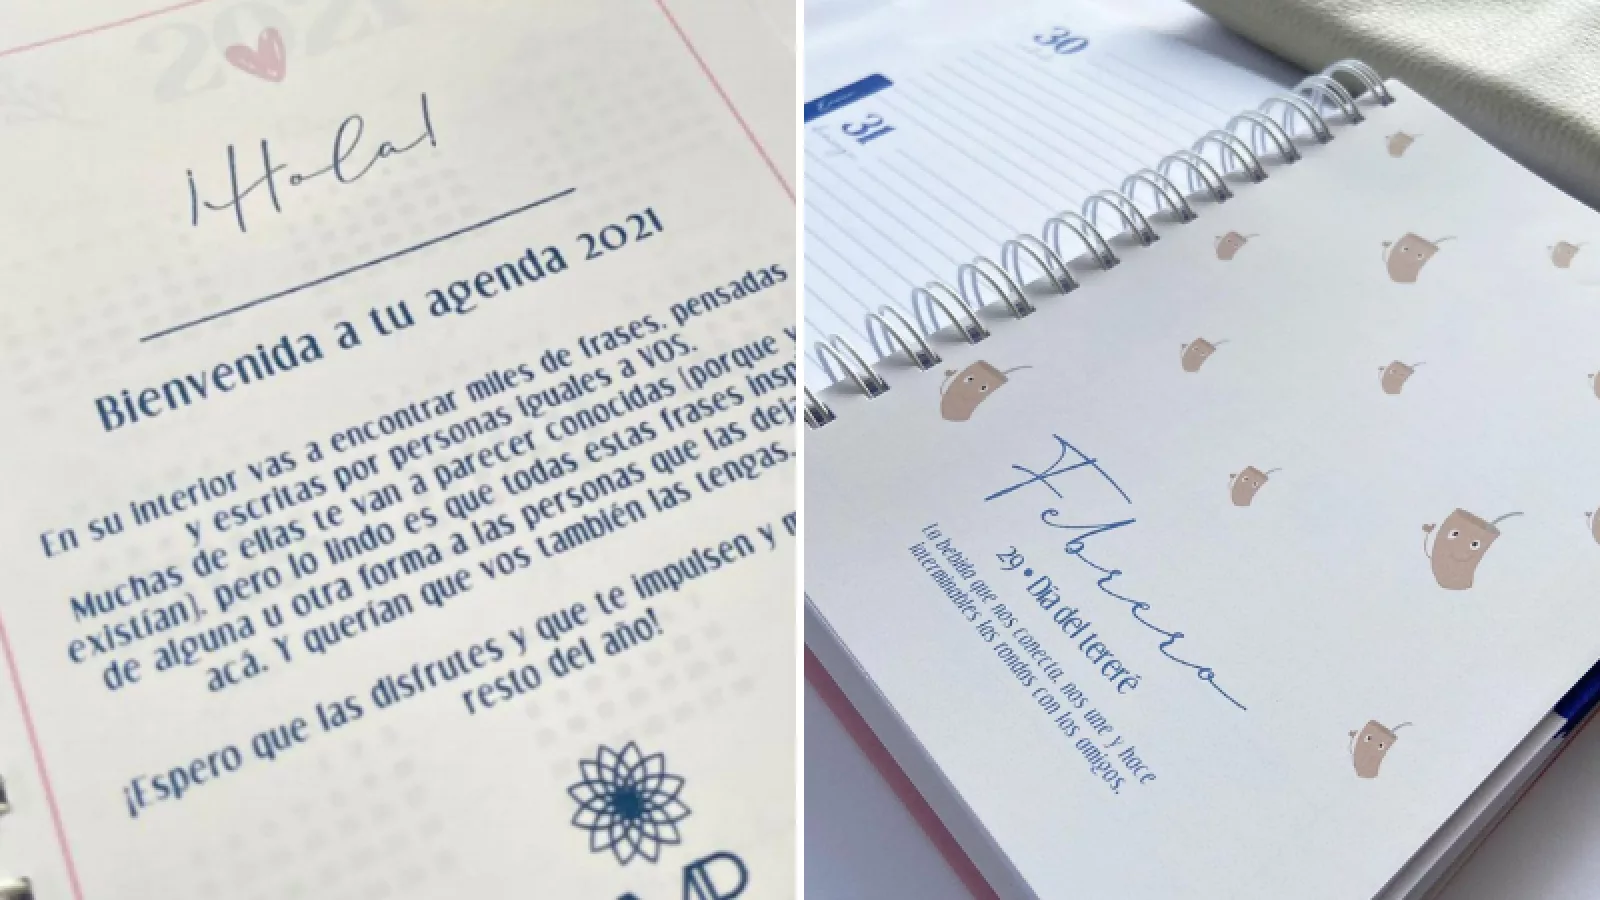 2021
¡Hola!
Bienvenida a tu agenda 2021
En su interior vas a encontrar miles de frases, pensadas
y escritas por personas iguales a VOS.
Muchas de ellas te van a parecer conocidas (porque
existían), pero lo lindo es que todas estas frases
de alguna u otra forma a las personas que las
acá. Y querían que vos también las tengas.
¡Espero que las disfrutes y que te impulsen y
resto del año!
30
31
Febrero
29 • Día del tereré
La bebida que nos conecta, nos une y hace
interminables las rondas con los amigos.